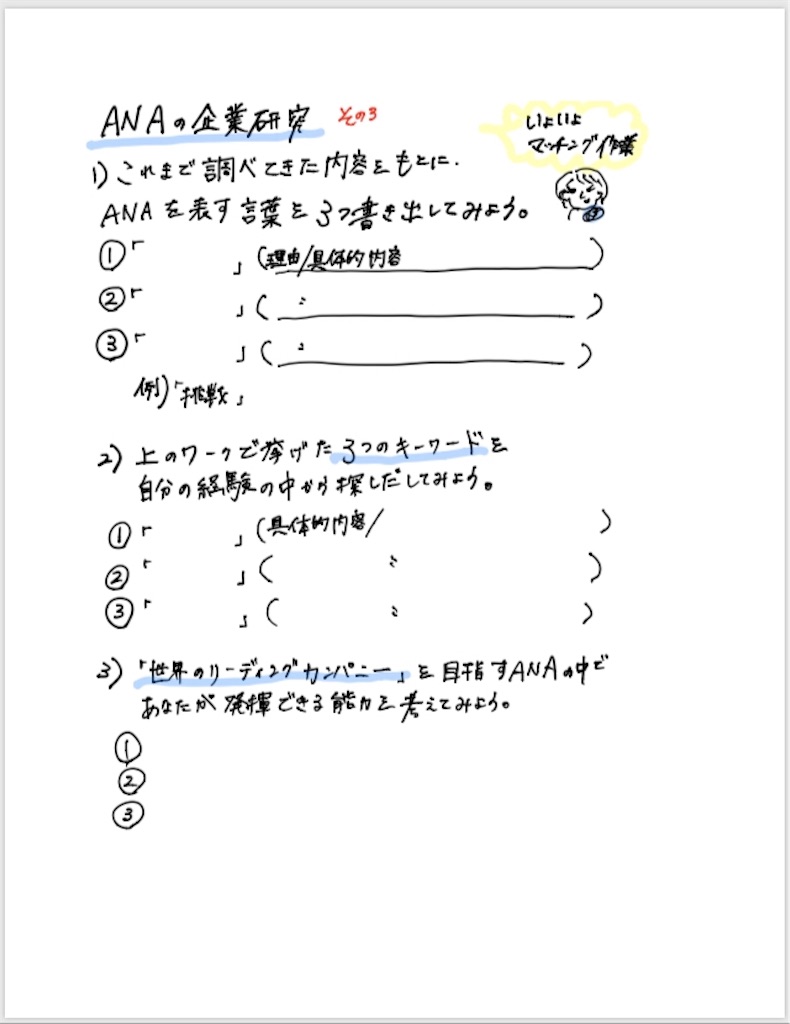 ANAの企業研究 その3
いよいよ
マッチング作業
1) これまで調べてきた内容をもとに、
ANAを表す言葉を3つ書き出してみよう。
①「 」(理由/具体的内容 )
②「 」( 〃 )
③「 」( 〃 )
例)「挑戦」
2) 上のワークで挙げた3つのキーワードを
自分の経験の中から探しだしてみよう。
①「 」(具体的内容/ )
②「 」( 〃 )
③「 」( 〃 )
3) 「世界のリーディングカンパニー」を目指すANAの中で
あなたが発揮できる能力を考えてみよう。
①
②
③